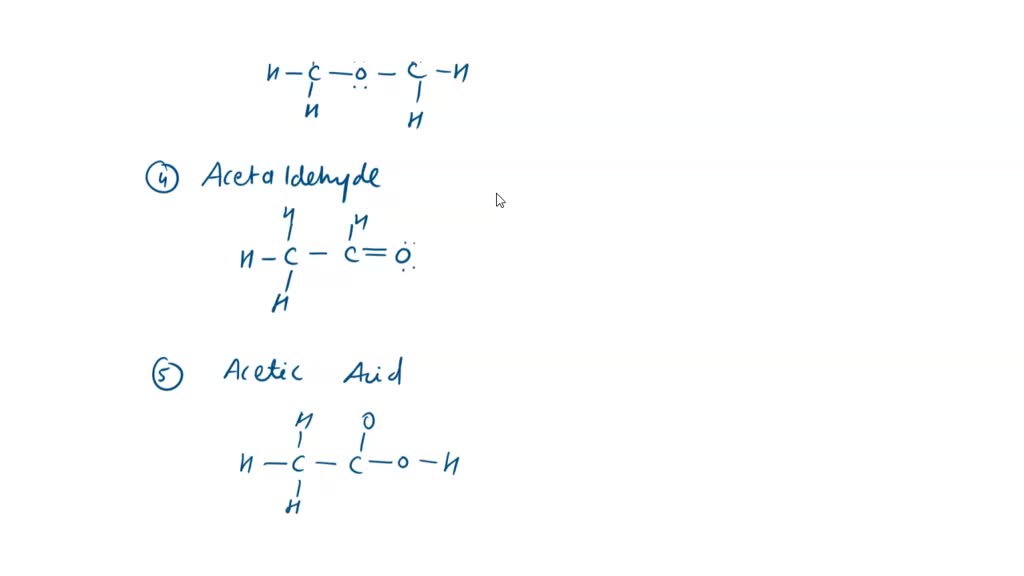 H – C – O – C – H
H H
④ Acetaldehyde
H H
H – C – C = O
H
⑤ Acetic Acid
H O
H – C – C – O – H
H